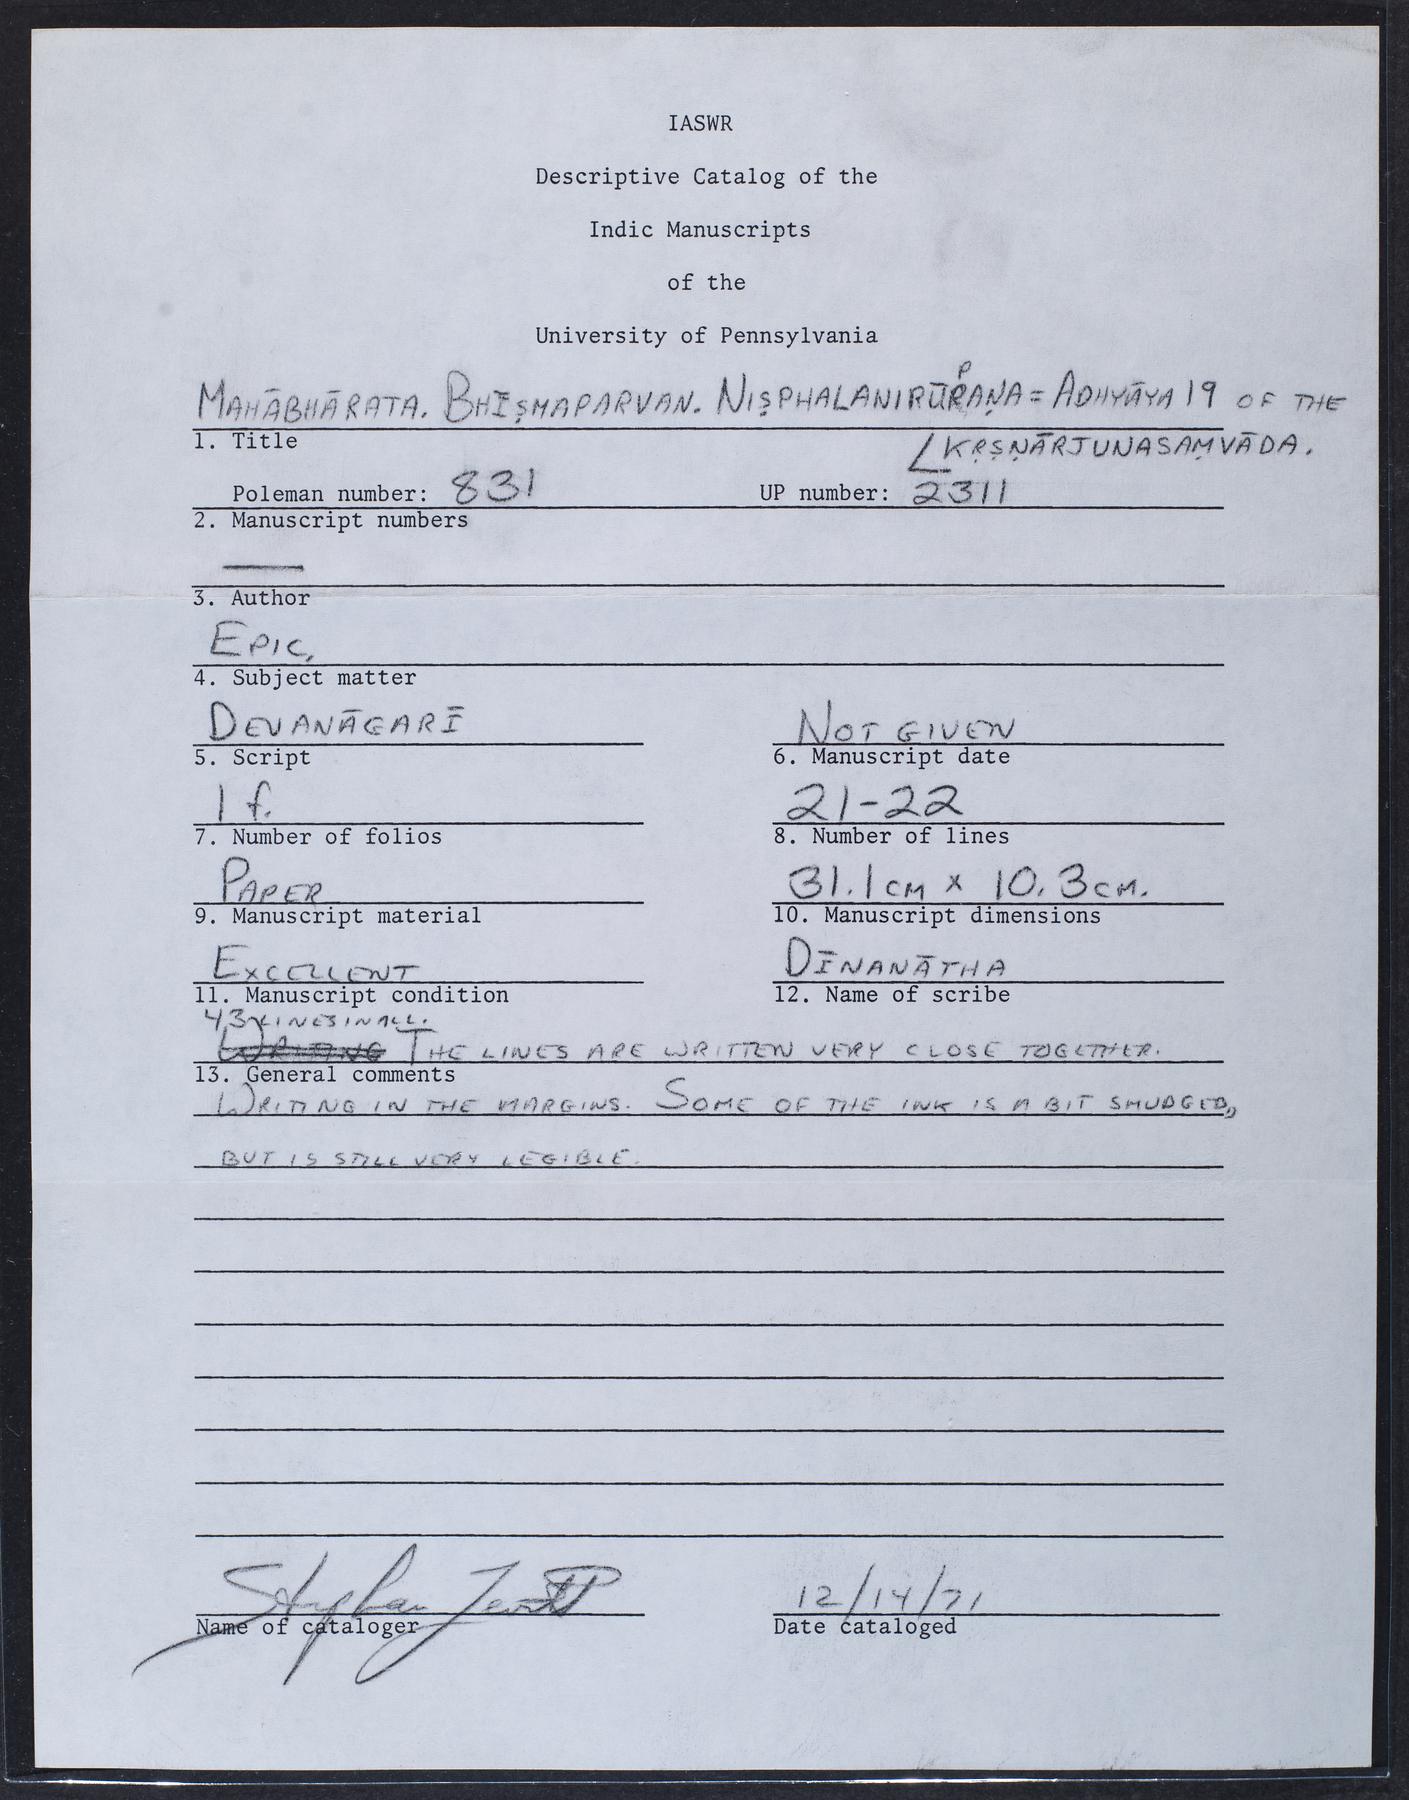 IASWR
Descriptive Catalog of the
Indic Manuscripts
of the
University of Pennsylvania
MAHĀBHĀRATA. BHĪṢMAPARVAN. NIṢPHALANIRŪPAṆA = ADHYĀYA 19 OF THE
1. Title
KṚṢṆĀRJUNASAṂVĀDA.
Poleman number: 831 UP number: 2311
2. Manuscript numbers
—
3. Author
EPIC,
4. Subject matter
DEVANĀGARĪ NOT GIVEN
5. Script 6. Manuscript date
1 f. 21-22
7. Number of folios 8. Number of lines
PAPER 31.1 CM x 10.3 CM.
9. Manuscript material 10. Manuscript dimensions
EXCELLENT DĪNANĀTHA
11. Manuscript condition 12. Name of scribe
43 LINES IN ALL.
WRITING THE LINES ARE WRITTEN VERY CLOSE TOGETHER.
13. General comments
WRITING IN THE MARGINS. SOME OF THE INK IS A BIT SMUDGED,
BUT IS STILL VERY LEGIBLE.
Stephan 12/14/71
Name of cataloger Date cataloged